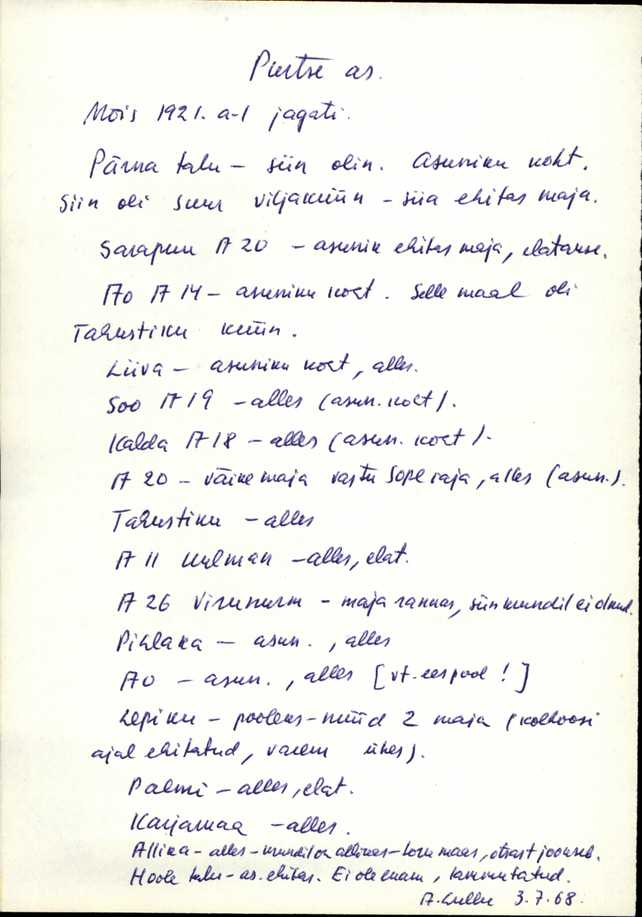 Purtse as.
Mõis 1921. a-l jagati.
Pärna talu – siin olin. Asuniku koht.
Siin oli suur viljaküün – siia ehitas maja.
Sarapuu A 20 – asunik ehitas maja, elatakse.
Ao A 14 – asuniku koht. Selle maal oli
Tahustiku küün.
Liiva – asuniku koht, alles.
Soo A 19 – alles (asun. koht).
Kalda A 18 – alles (asun. koht).
A 20 – väike maja vastu Sope raja, alles (asun.).
Tahustiku – alles
A 11 Kulman – alles, elat.
A 26 Virunurm – maja rannas, siin krundil ei olnud.
Pihlaka – asun., alles
Ao – asun., alles [vt. eespool!]
Lepiku – pooleks – nüüd 2 maja (kolhoosi
ajal ehitatud, varem ühes).
Palmi – alles, elat.
Karjamaa – alles.
Allika – alles – krundil on allikas – toru maas, otsast jookseb.
Hoole talu – as. ehitas. Ei ole enam, lammutatud.
3.7.68.